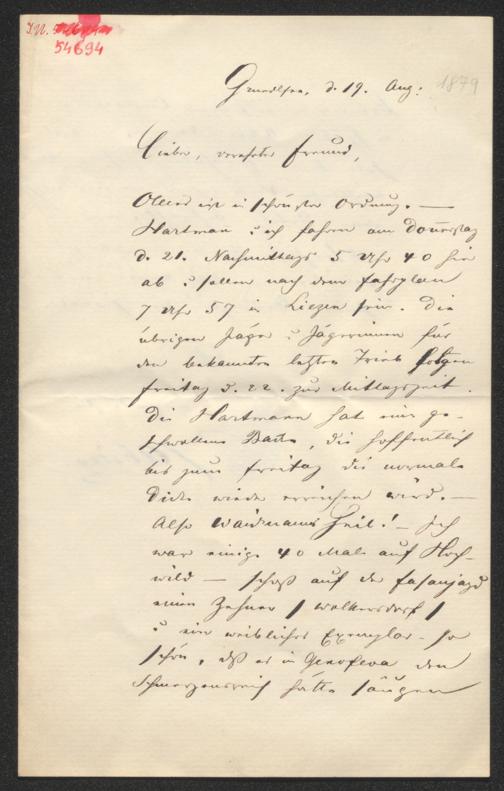 I.N.
54694
Gmundsee, d. 19. Aug: 1879
Lieber, verehrter Freund,
Alles ist in schönster Ordnung. —
Hartman u ich fahren am Donerstag
d. 21. Nachmittags 5 Uhr 40 hier
ab u sollen nach dem Fahrplan
7 Uhr 57 in Liezen sein. Die
übrigen Jäger u Jägerinnen für
den bekannten letzten Trieb folgen
Freitag d. 22. zur Mittagszeit.
Die Hartmann hat eine ge-
schwollene Backe, die hoffentlich
bis zum Freitag die normale
Dicke wieder erreichen wird. —
Also Waidmanns Heil! — Ich
war einige 40 Male auf Hoch-
wild — schoß auf der Fasanjagd
einen Zehner / Wolkersdorf /
u ein weibliches Exemplar — so
schön, daß es in Genofeva den
Schmerzensreich hätte säugen